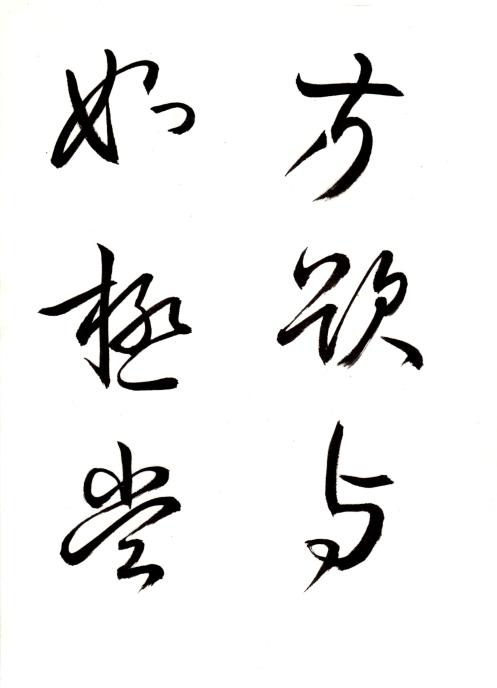 方欲与
如極